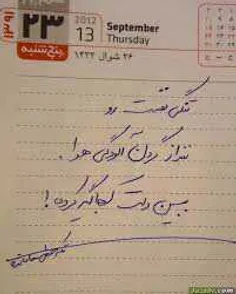 ۱۳۹۱
۲۳
پنج‌شنبه
2012
13
September
Thursday
۲۶ شوال ۱۴۳۳
تنگی نفست رو
ننداز گردن آلودگی هوا.
ببین دلت کجا گیر کرده!